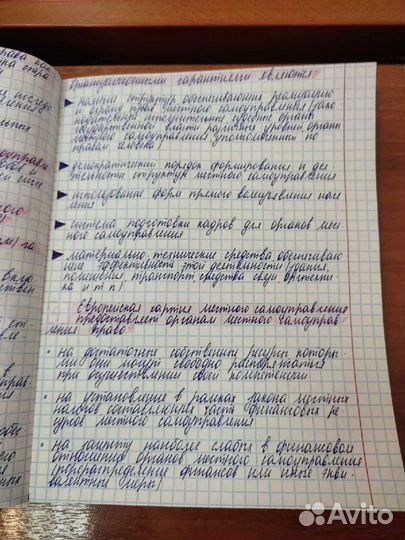 Организационными гарантиями являются:
наличие структур обеспечивающих реализацию
и охрану прав местного самоуправления (зако-
нодательные исполнительные судебные органы
государственной власти различных уровней, органы
местного самоуправления уполномоченные по
правам человека)
демократический порядок формирования и дея
тельности структур местного самоуправления
использование форм прямого волеизъявления насе
ления
система подготовки кадров для органов мес
тного самоуправления
материально-технические средства обеспечиваю
щие эффективность этой деятельности (здания,
помещения транспорт средства связи оргтехни-
ка и т п)
Европейская хартия местного самоуправления
предоставляет органам местного самоуправ
ления право
на достаточные собственные ресурсы которы-
ми они могут свободно распоряжаться
при осуществлении своей компетенции
на установление в рамках закона местных
налогов составляющих часть финансовых ре
сурсов местного самоуправления
на защиту наиболее слабых в финансовом
отношении органов местного самоуправления
(перераспределение финансов или иные экви-
валентные меры)
Avito